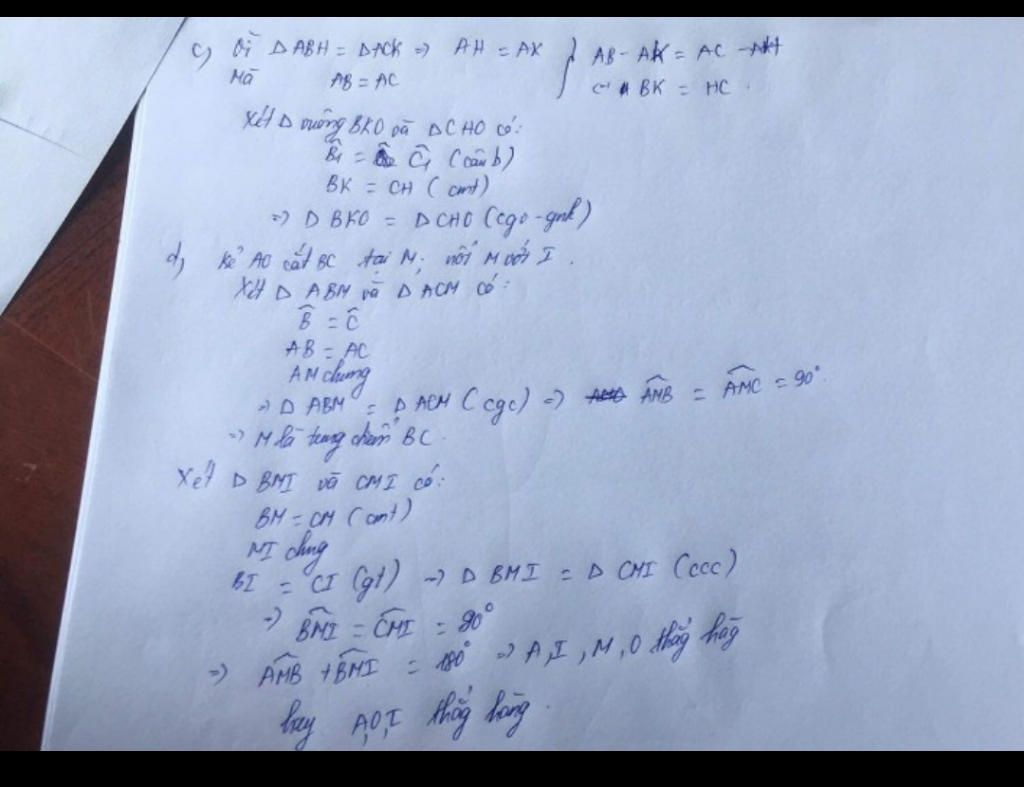 c) Vì Δ ABH = Δ ACK => AH = AK } AB - AK = AC - AH
Mà AB = AC <=> BK = HC.
Xét Δ vuông BKO và Δ CHO có:
B̂₁ = Ĉ₁ (câu b)
BK = CH (cmt)
=> Δ BKO = Δ CHO (cgv-gnk)
d) Kẻ AO cắt BC tại M; nối M với I.
Xét Δ ABM và Δ ACM có:
B̂ = Ĉ
AB = AC
AM chung
=> Δ ABM = Δ ACM (cgc) => AMB̂ = AMĈ = 90°.
=> M là trung điểm BC.
Xét Δ BMI và CMI có:
BM = CM (cmt)
MI chung
BI = CI (gt) => Δ BMI = Δ CMI (ccc)
=> BMÎ = CMÎ = 90°
=> AMB̂ + BMÎ = 180° => A, I, M, O thẳg hàg
hay A,O,I thẳg hàng.